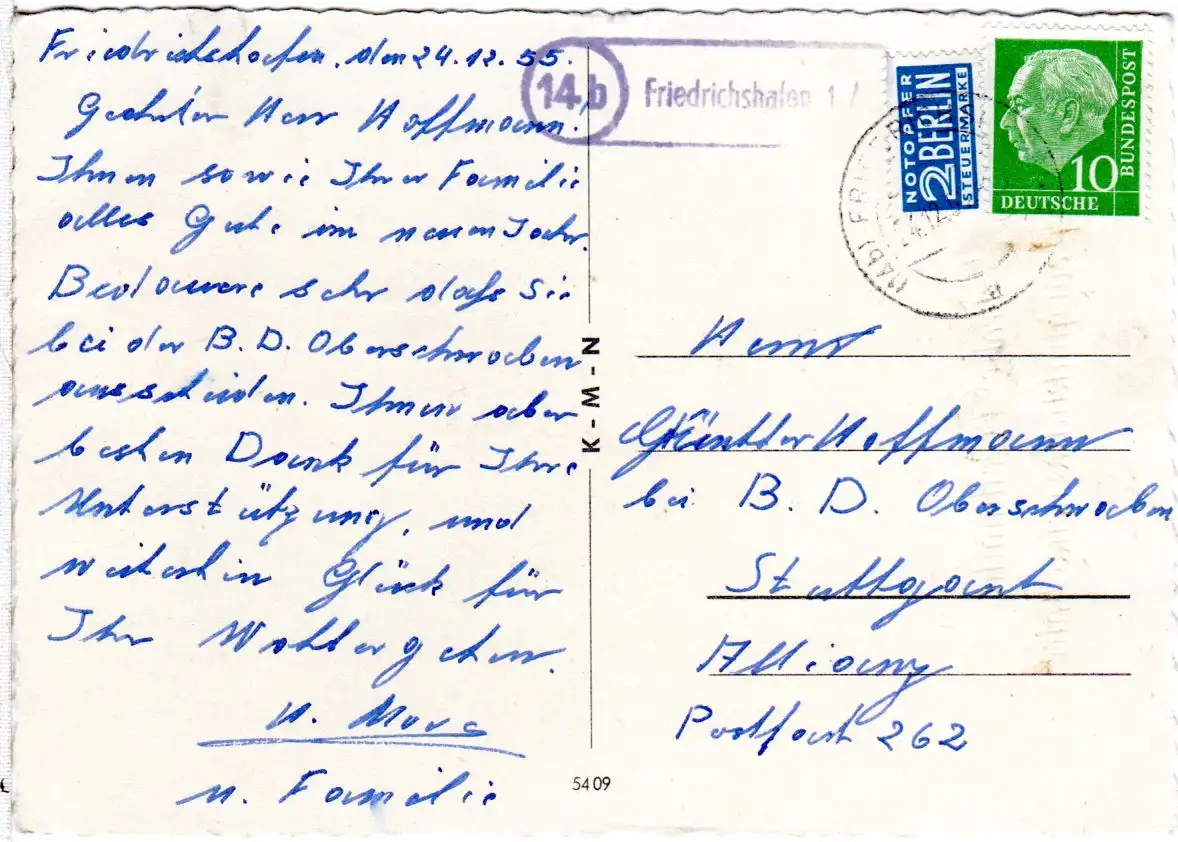 Friedrichshafen, den 24.12.55.
Geehrter Herr Hoffmann!
Ihnen sowie Ihrer Familie
alles Gute im neuen Jahr.
Bedauere sehr daß Sie
bei der B. D. Oberschwaben
ausscheiden. Ihnen aber
besten Dank für Ihre
Unterstützung, und
weiterhin Glück für
Ihr Wohlergehen.
u. Familie
14b Friedrichshafen 1
NOTOPFER
2 BERLIN
STEUERMARKE
10
DEUTSCHE
BUNDESPOST
(14b) FRI
24.12.
K-M-N
Herrn
Günther Hoffmann
bei B. D. Oberschwaben
Stuttgart
Allianz
Postfach 262
5409